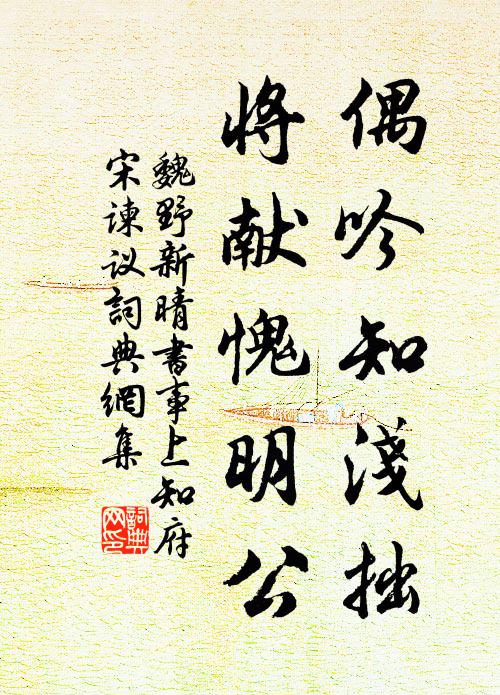 偶吟知淺拙
将献愧明公
魏野新晴書事上知府
宋諫议詞典網集
詞典
网印